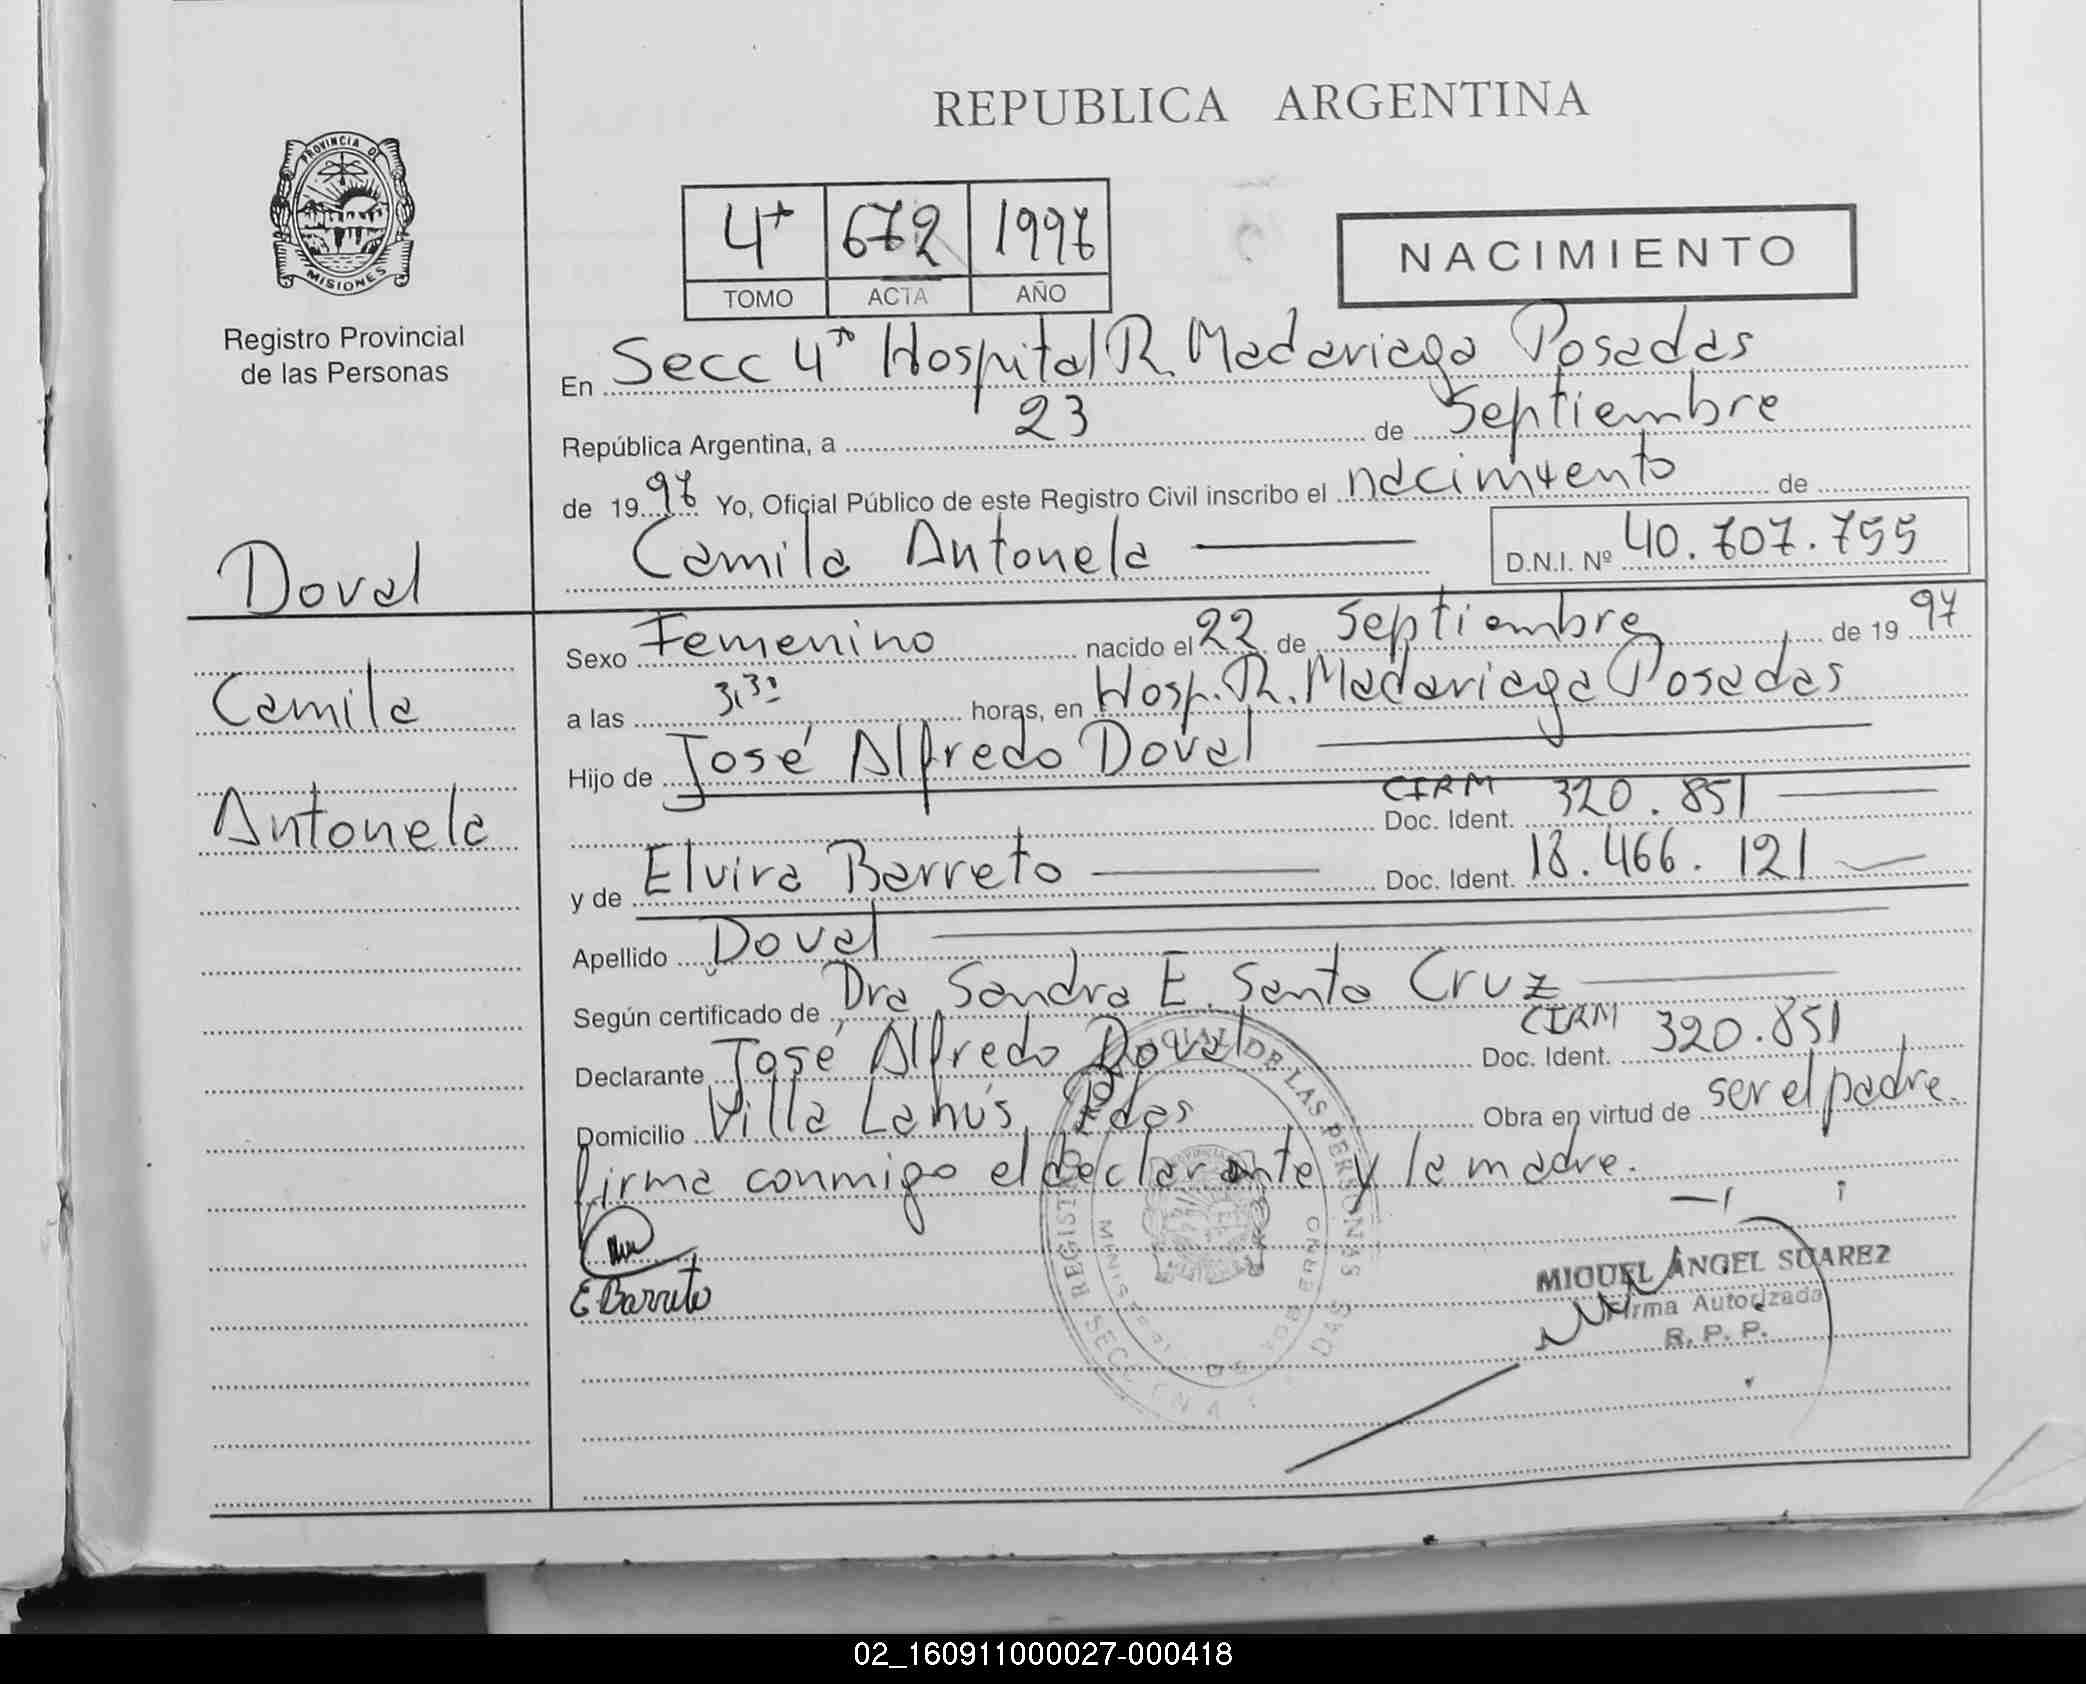 REPUBLICA ARGENTINA
PROVINCIA DE
MISIONES
Registro Provincial
de las Personas
4ta 672 1997
TOMO ACTA AÑO
NACIMIENTO
En Secc 4ta Hospital R. Madariaga Posadas
República Argentina, a 23 de Septiembre
de 1997 Yo, Oficial Público de este Registro Civil inscribo el nacimiento de
Camila Antonela
D.N.I. Nº 40.707.755
Doval
Camila
Antonela
Sexo Femenino nacido el 22 de Septiembre de 1997
a las 3,30 horas, en Hosp. R. Madariaga Posadas
Hijo de José Alfredo Doval
CIRM
Doc. Ident. 320.851
y de Elvira Barreto Doc. Ident. 18.466.121
Apellido Doval
Según certificado de Dra Sandra E. Santa Cruz
CIRM
Declarante José Alfredo Doval Doc. Ident. 320.851
Domicilio Villa Lanús Pdas Obra en virtud de ser el padre.
firma conmigo el declarante y la madre.
E Barreto
DE LAS PERSONAS
MIGUEL ANGEL SUAREZ
Firma Autorizada
R. P. P.
02_160911000027-000418